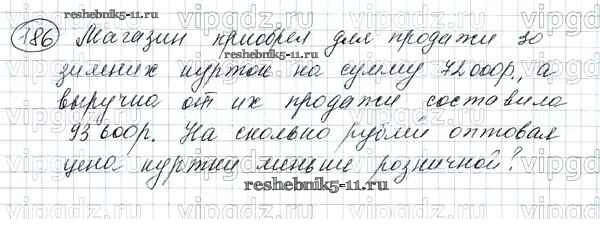 reshebnik5-11.ru
186 Магазин приобрел для продажи 30
зимних курток на сумму 72 000р., а
выручка от их продажи составила
93 600р. На сколько рублей оптовая
цена куртки меньше розничной?
reshebnik5-11.ru